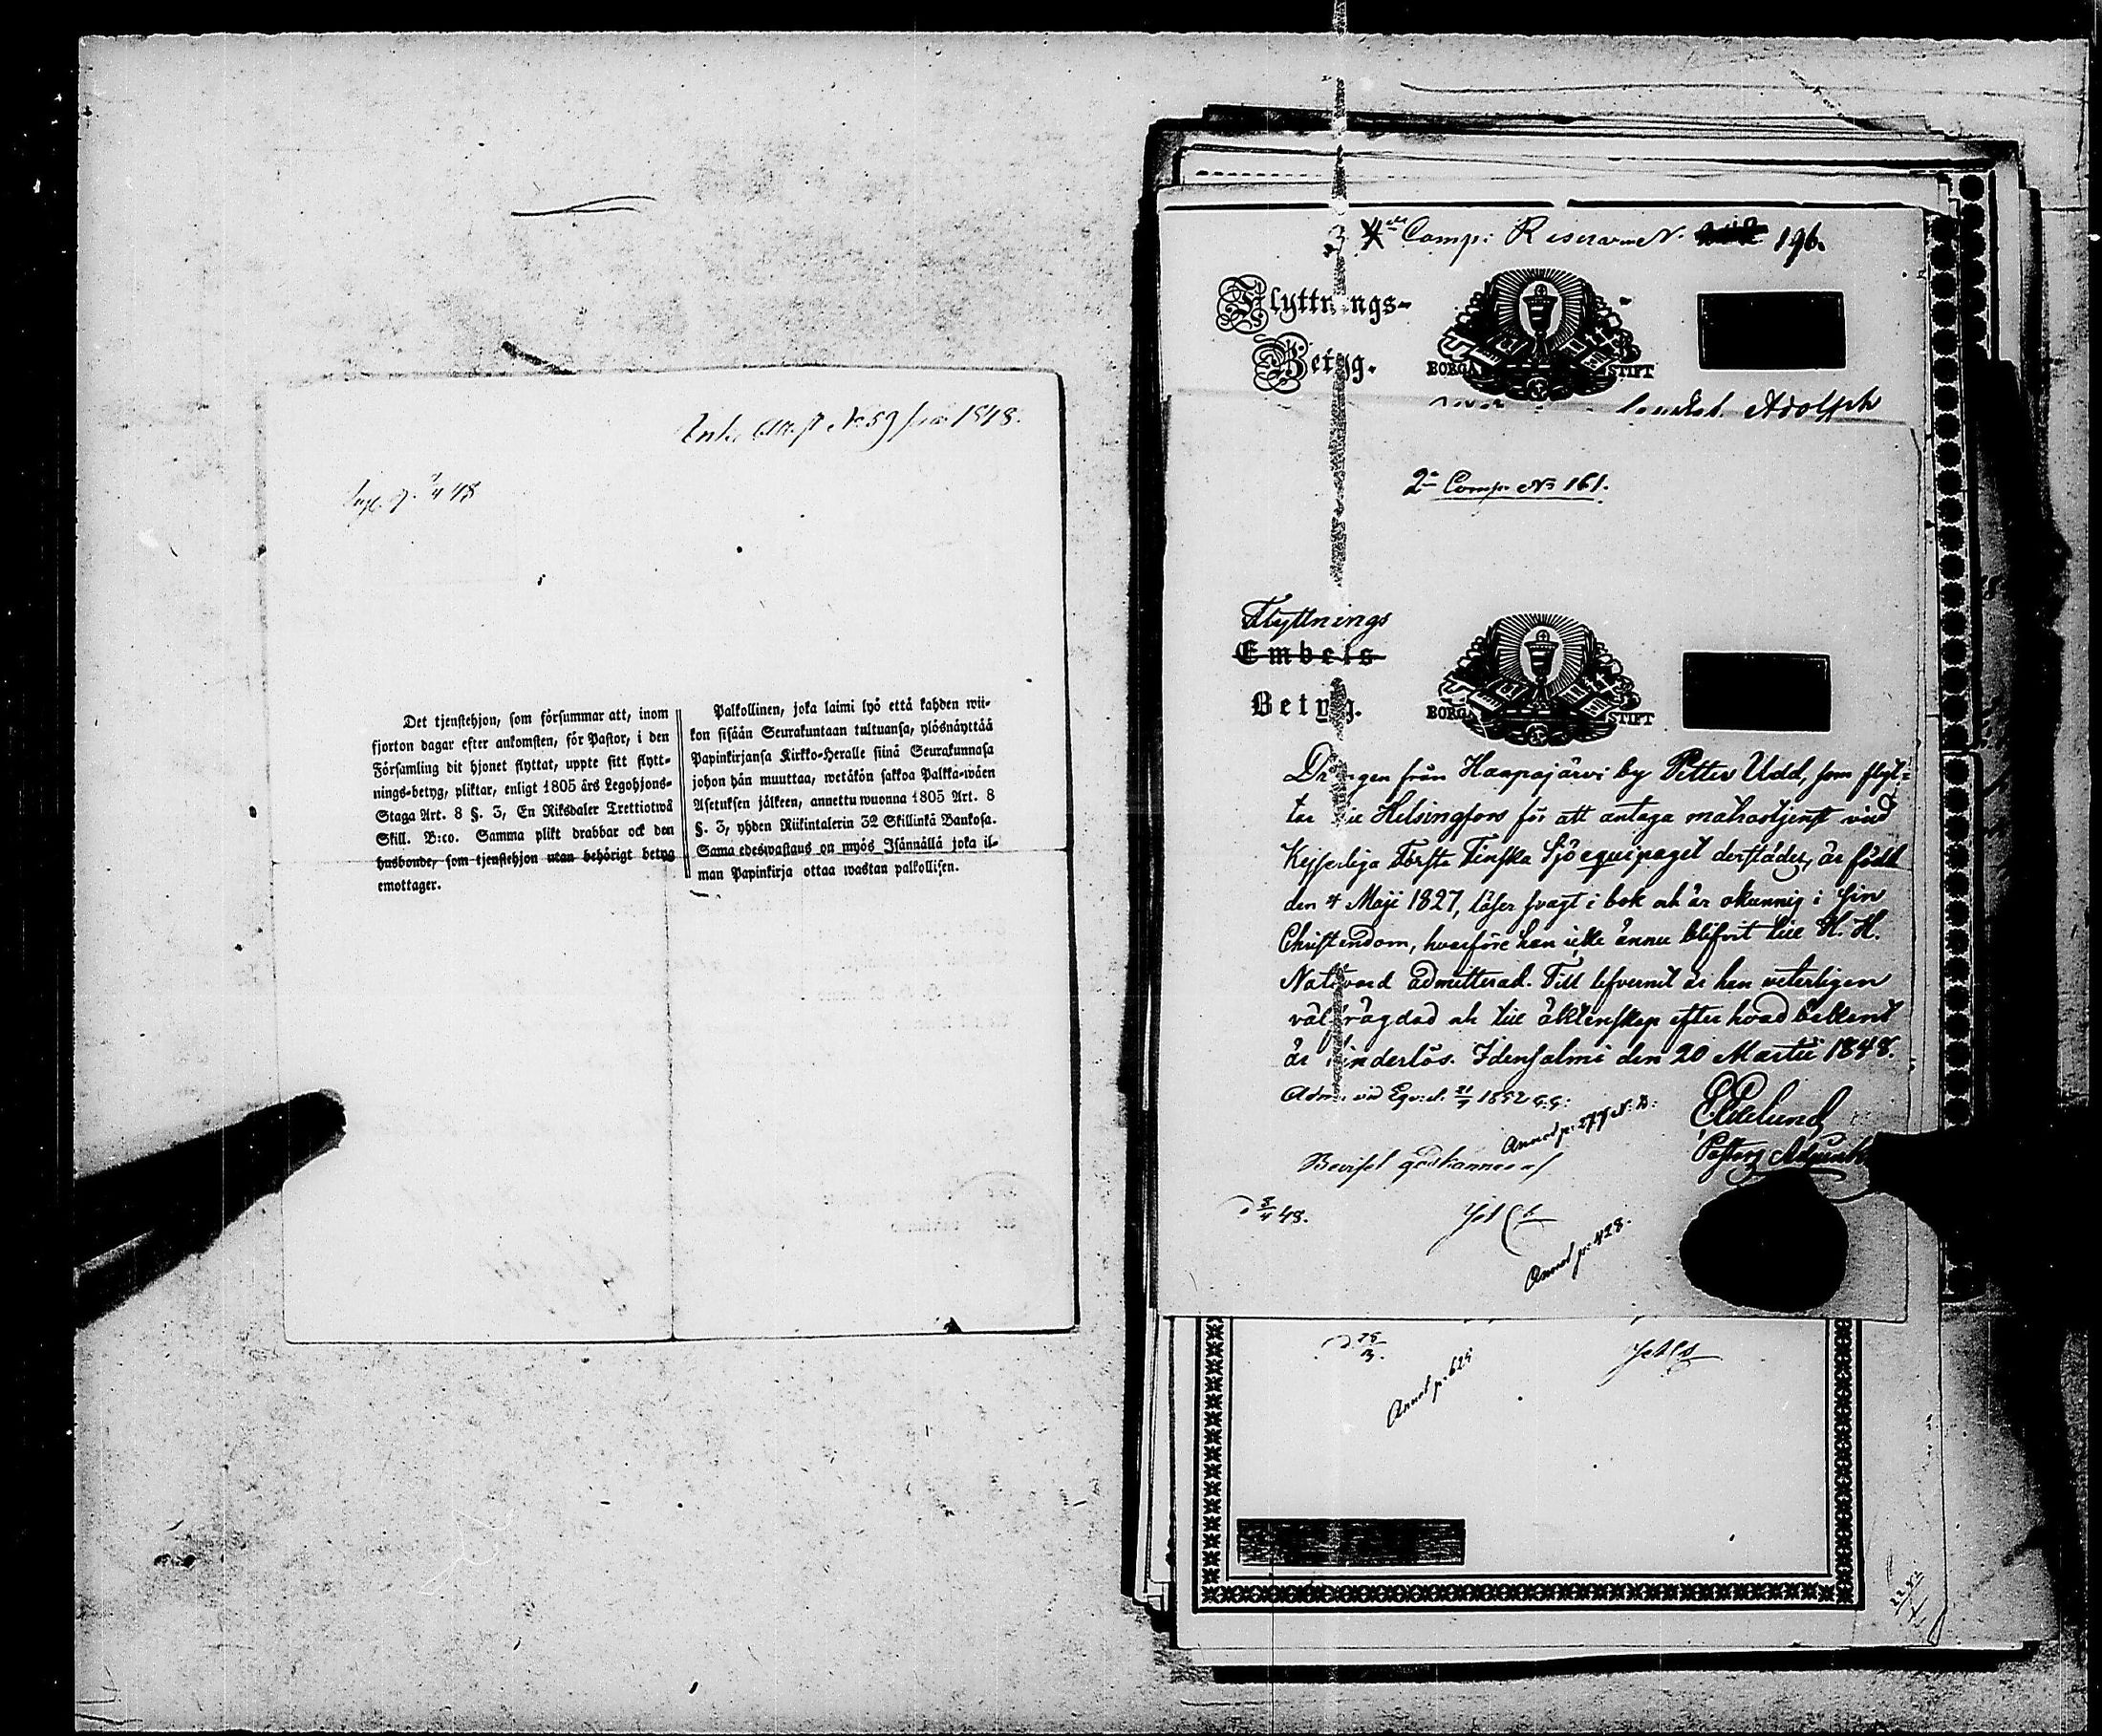 Attest No 59 1848.
Det tjenstehjon, som försummar att, inom
fjorton dagar efter ankomsten, för Pastor, i den
Församling dit hjonet flyttat, uppte sitt flytt-
nings-betyg, pliktar, enligt 1805 års Legohjons-
Staga Art. 8 §. 3, En Riksdaler Trettiotwå
Skill. B:co. Samma plikt drabbar ock den
husbonde, som tjenstehjon utan behörigt betyg
emottager.
Palkollinen, joka laimi lyö että kahden wii-
kon sisään Seurakuntaan tultuansa, ylösnäyttää
Papinkirjansa Kirkko-Heralle siinä Seurakunnasa
johon hän muuttaa, wetäkön sakkoa Palkka-wäen
Asetuksen jälkeen, annettu wuonna 1805 Art. 8
§. 3, yhden Riikintalerin 32 Skillinkä Bankosa.
Sama edeswastaus on myös Isännällä joka il-
man Papinkirja ottaa wastan palkollisen.
Comp: Reserv N. 196.
Flyttnings-
Betyg.
BORGÅ STIFT
Adolph
2a Comp. No 161.
Flyttnings
Embets
Betyg.
BORGÅ STIFT
Drängen från Haapajärvi by Petter Udd, som flyt-
tar till Helsingfors för att antaga matrostjenst vid
Kejserliga Första Finska Sjöequipaget derstädes, är född
den 4 Maji 1827, läser svagt i bok och är okunnig i sin
Christendom, hvarföre han icke ännu blifvit till H. H.
Nattvard admitterad. Till lefvernet är han veterligen
välfrägdad och till äktenskap efter hvad bekant
är hinderlös. Idensalmi den 20 Martii 1848.
Adm. vid Eqv:t. 21/7 1852 G.G:
Annot p: 277 N. B:
Pastors Adjunkt
Beviset godkännes af
D 8/4 48.
Annot p: 428.
Annot p: 624